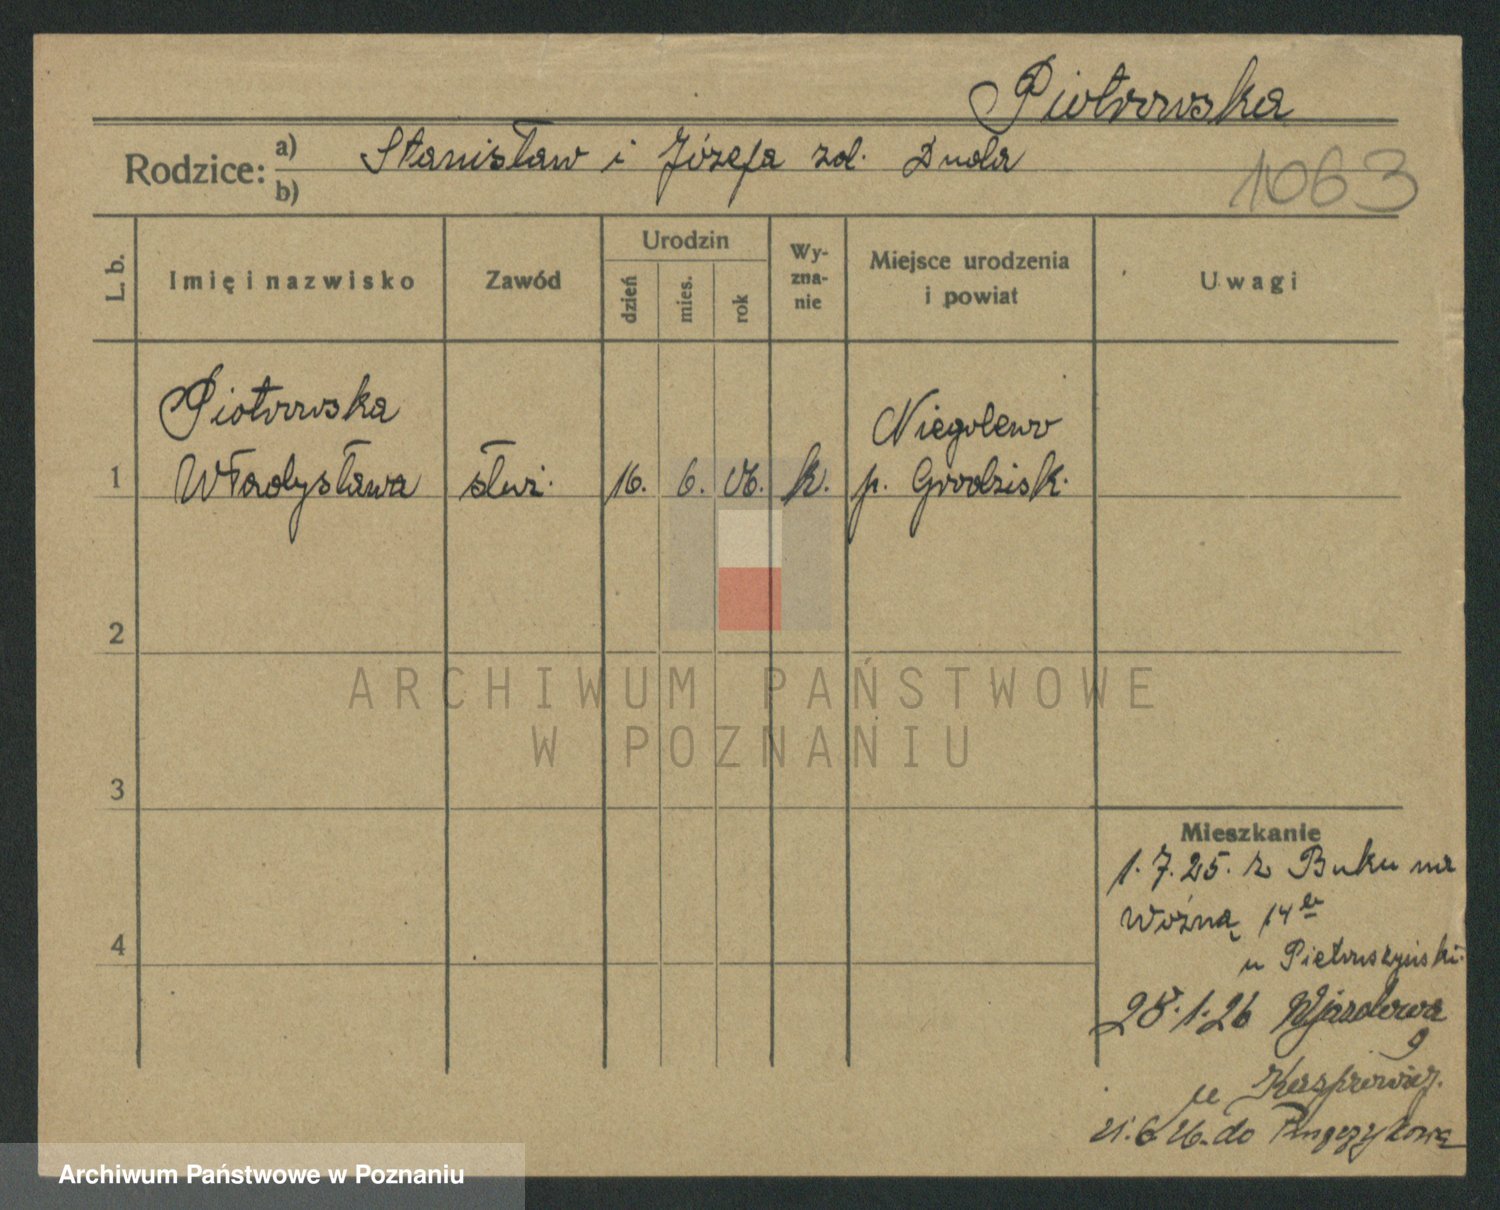 Piotrowska
Rodzice: a) Stanisław i Józefa zd. Duda
b)
1063
L. b.
Imię i nazwisko
Zawód
Urodzin
dzień
mies.
rok
Wy-
zna-
nie
Miejsce urodzenia
i powiat
Uwagi
Piotrowska
Niegolewo
1 Władysława służ. 16. 6. 06. k. p. Grodzisk.
2
ARCHIWUM PAŃSTWOWE
W POZNANIU
3
Mieszkanie
1.7.25. z Buku na
Woźną 14
4
u Pietruszyński.
28.1.26 Wjazdowa
9
u Kasprowicz.
21.6.26. do
Archiwum Państwowe w Poznaniu